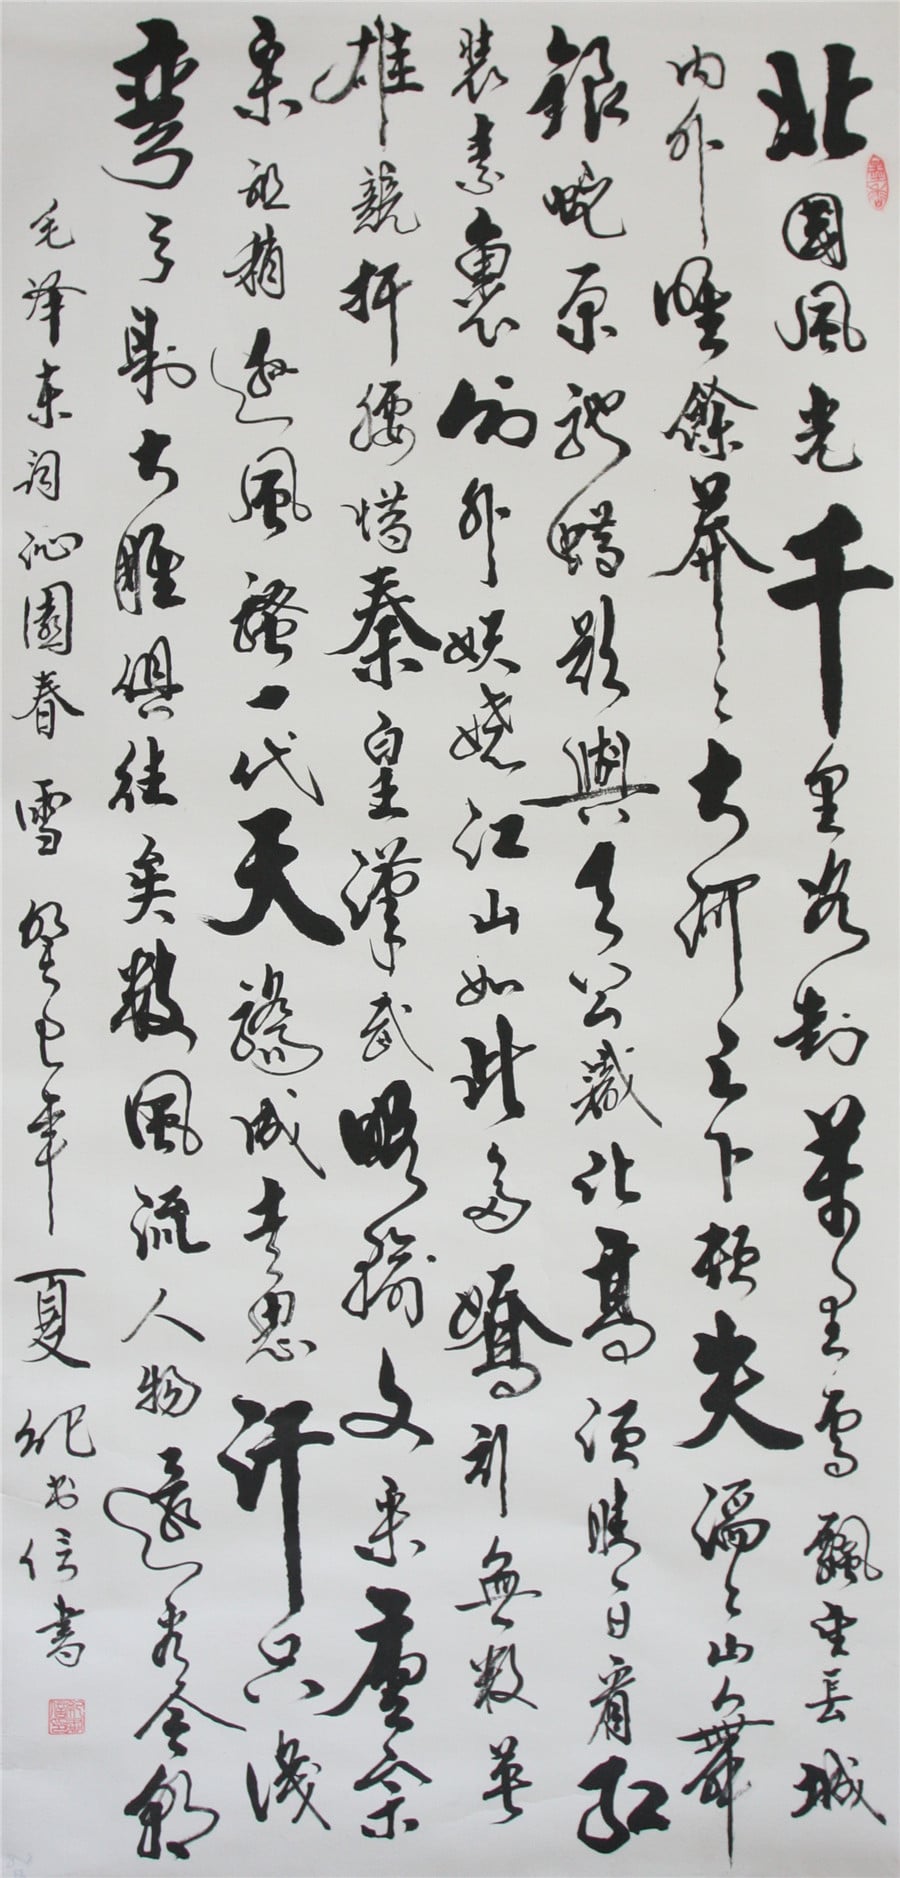 北國風光千里冰封萬里雪飄望長城
内外惟餘莽〻大河上下頓失滔〻山舞
銀蛇原馳蠟欲與天公試比高須晴日看紅
裝素裹分外妖嬈江山如此多嬌引無數英
雄競折腰惜秦皇漢武略輸文采唐宗
宋祖稍遜風騷一代天驕成吉思汗只識
彎弓射大雕俱往矣數風流人物還看今朝
毛泽東詞沁園春雪癸巳年夏紀书信書